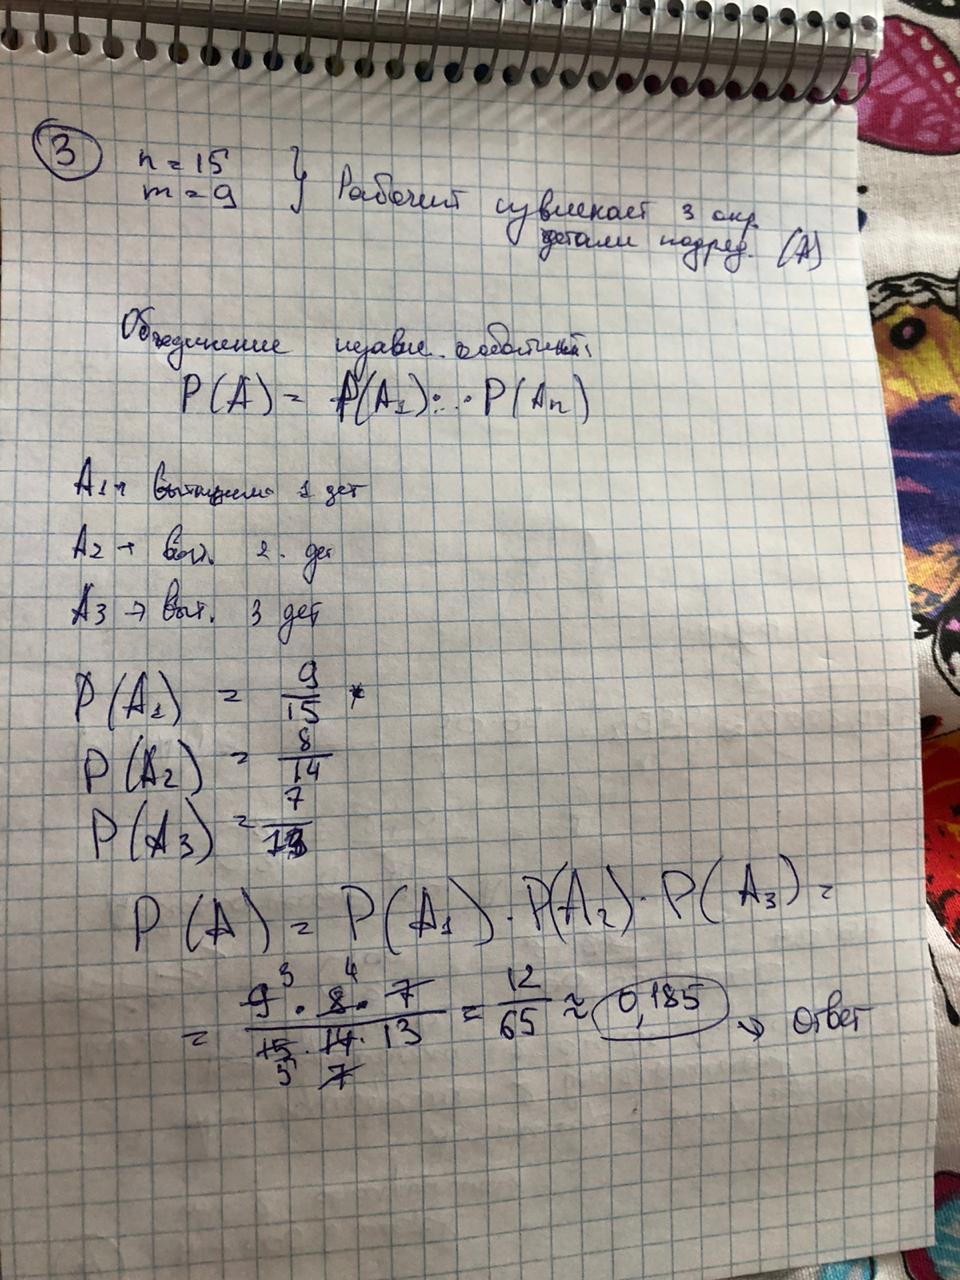 3
n = 15
m = 9 } Рабочий извлекает 3 окр.
детали подряд. (A)
Объединение независ.
P(A) = P(A₁)·...·P(Aₙ)
A₁ → 1 дет
A₂ → выт. 2. дет
A₃ → выт. 3 дет
P(A₁) = 9/15
P(A₂) = 8/14
P(A₃) = 7/13
P(A) = P(A₁)·P(A₂)·P(A₃) =
= 9³·8⁴·7 / 15·14·13 = 12/65 ≈ 0,185 → Ответ
5 7